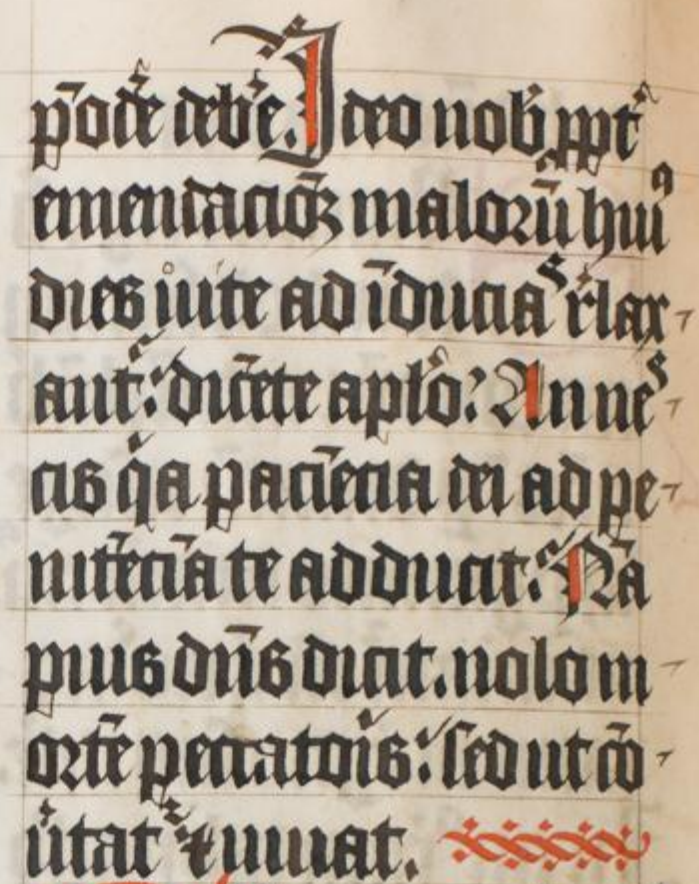 p̄od̄e deb'e. Ideo nob' ꝓpt'
emendacioē̄ꝫ maloꝝū huiꝰ
dies uite ad īducias r'lax-
ant᷑: dicēte aplō: An nes-
cis q̄a paciēcia dei ad pe-
nitēciā te adducit: Nā
pius dn̄s dicit. nolo m-
ortē peccatoīs: sed ut cō-
ūtat᷑ & uiuat.